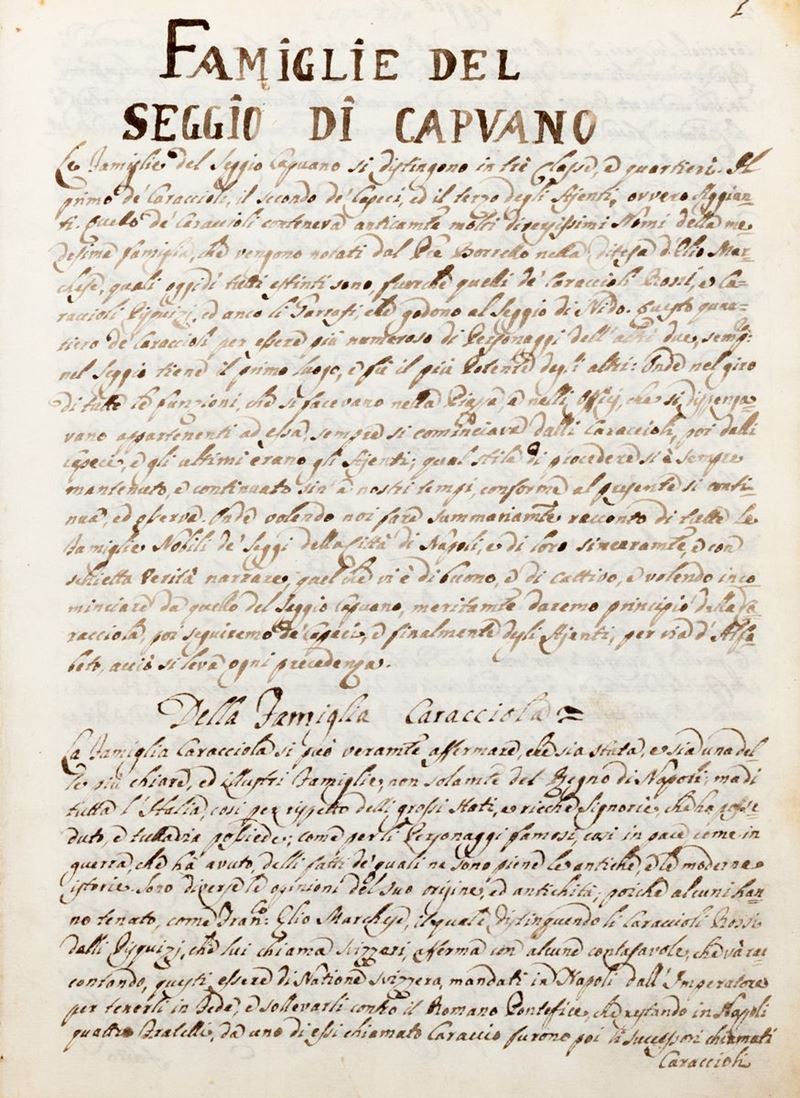 1
FAMIGLIE DEL
SEGGIO DI CAPVANO
Le Famiglie del Seggio Capuano si distingono in trè Classe, e quartieri. Il
primo de' Caraccioli, il secondo de' Capeci, ed il terzo degli Ajenti, ovvero Aggian-
ti. Quello de' Caraccioli conteneva anticamte molti diversissimi Nomi della me-
desima famiglia, che vengono notati dal Pre Borrello nella difesa d'Elio Mar-
chese, quali oggidì tutti estinti sono, fuorchè quelli de' Caraccioli Rossi, e Ca-
raccioli Pisquizi, ed anco li Garrafi, che godono al Seggio di Nido. Questo quar-
tiero de' Caraccioli per essere più numeroso di Personaggi dell'altri due, semp:
nel Seggio tiene il primo luogo, e fù il più Potente degli altri: Onde nel giro
di tutte le funzioni, che si facevano nella Piazza, e nelli Officij, che si dispenza-
vano appartenenti ad essa, sempre si cominciava dalli Caraccioli, poi dalli
Capece, e gli ultimi erano gli Ajenti; qual stile di procedere si è sempre
mantenuto, e continuato sin' a nostri tempi, conforme al presente si conti-
nua, ed osserva. Onde volendo noi fare summariamte racconto di tutte le
Famiglie Nobili de' Seggi della Città di Napoli, e di loro sinceramte, e con
schietta Verità narrare, quel che vi è di buono, e di cattivo, e volendo inco-
minciare da quello del Seggio Capuano, meritamte daremo principio dalla Ca-
racciola, poi seguiremo de' Capeci, e finalmente degli Ajenti, per via d'Alfa-
beto, acciò si leva ogni precedenza.
Della Famiglia Caracciola =
La Famiglia Caracciola si può veramte affermare, che sia stata, e sia una del-
le più chiare, ed illustri Famiglie, non solamte del Regno di Napoli, ma di
tutta l'Italia, così per rispetto delli grossi Stati, e ricche Signorie, che ha posse-
duto, e tuttavia possiede; come per li Personaggi famosi, così in pace come in
guerra, che ha avuto, delli fatti de' quali ne sono piene le antiche, e le moderne
istorie. Sono diverse le opinioni del suo origine, ed antichità; poiche alcuni han-
no tenato, come Franco: Elio Marchese, il quale distinguendo li Caraccioli Rossi
dalli Pisquizj, che lui chiama Svizzari, afferma con alcune contafavole, che và rac-
contando, questi essere di Natione Svizzera, mandati in Napoli dall'Imperatore
per tenerli in Fede, e sollevarli contro il Romano Pontefice, che restando in Napoli
quattro Fratelli, da uno di essi chiamato Caraccio furono poi li successori chiamati
Caraccioli